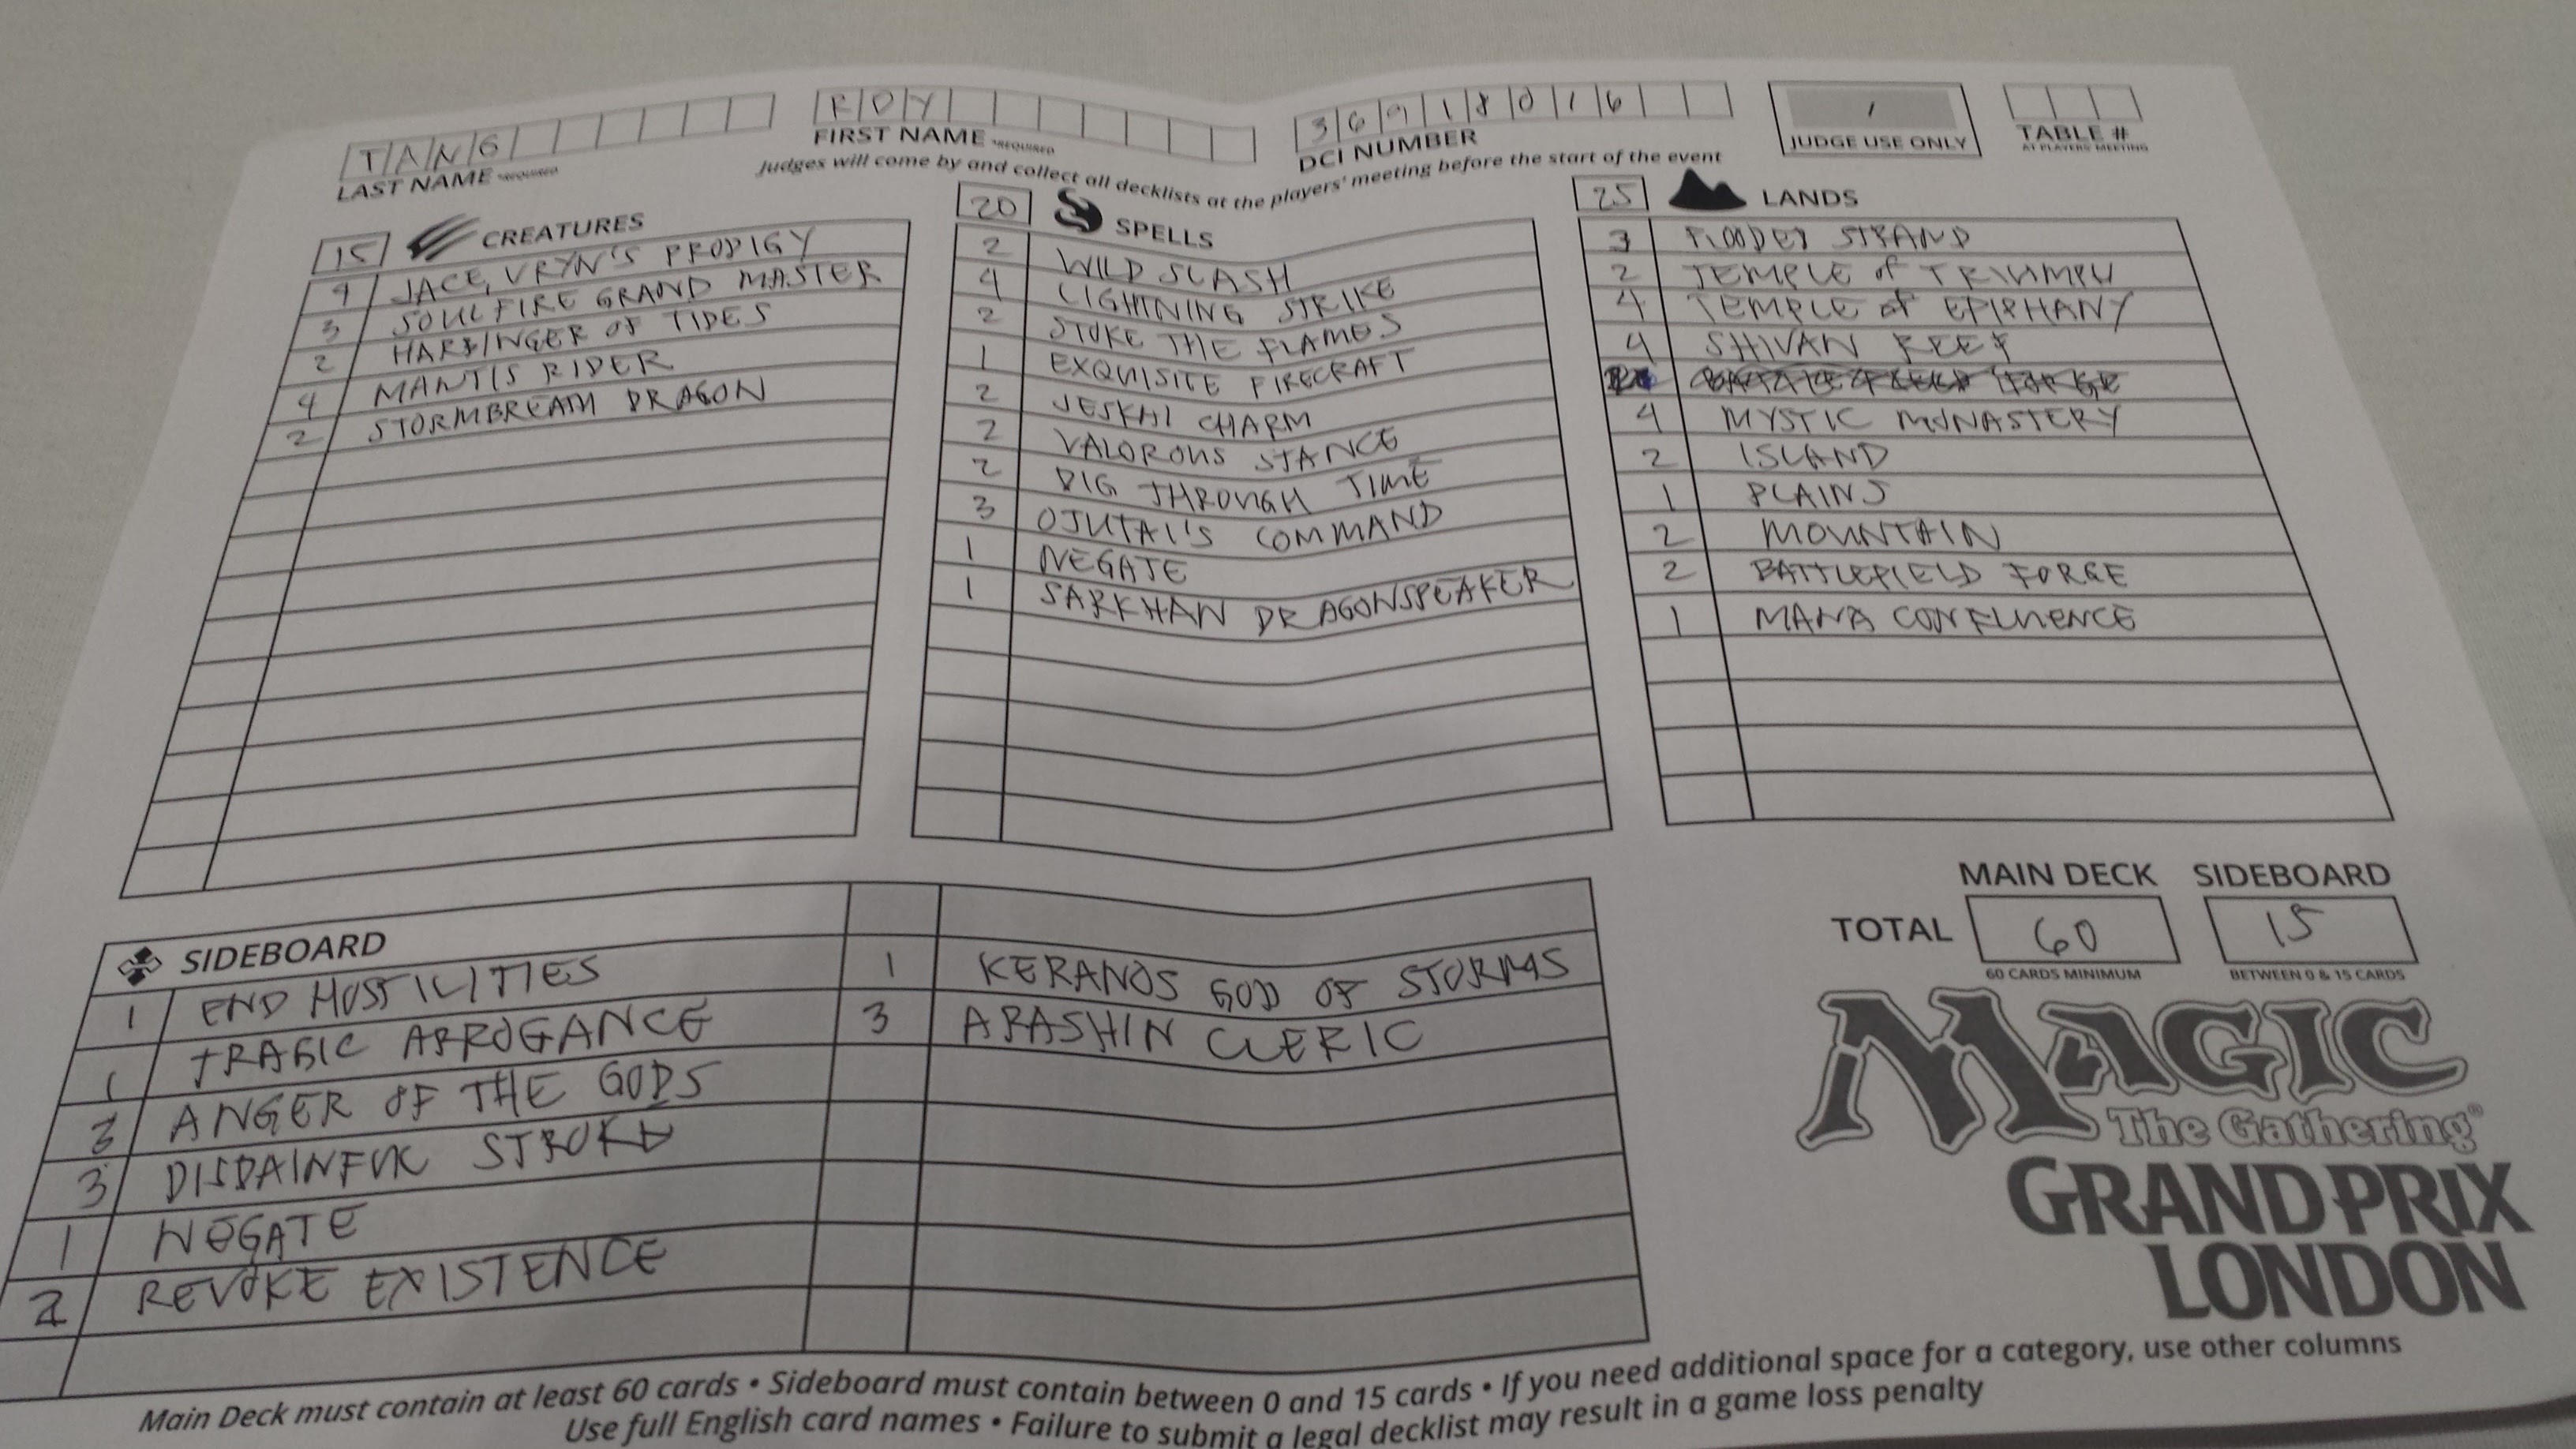 TANG
LAST NAME *REQUIRED
ROY
FIRST NAME *REQUIRED
36918016
DCI NUMBER
JUDGE USE ONLY
TABLE #
AT PLAYERS' MEETING
Judges will come by and collect all decklists at the players' meeting before the start of the event
15 CREATURES
4 JACE, VRYN'S PRODIGY
3 SOULFIRE GRAND MASTER
2 HARBINGER OF TIDES
4 MANTIS RIDER
2 STORMBREATH DRAGON
20 SPELLS
2 WILD SLASH
4 LIGHTNING STRIKE
2 STOKE THE FLAMES
1 EXQUISITE FIRECRAFT
2 JESKAI CHARM
2 VALOROUS STANCE
2 DIG THROUGH TIME
3 OJUTAI'S COMMAND
1 NEGATE
1 SARKHAN DRAGONSPEAKER
25 LANDS
3 FLOODED STRAND
2 TEMPLE of TRIUMPH
4 TEMPLE of EPIPHANY
4 SHIVAN REEF
4 MYSTIC MONASTERY
2 ISLAND
1 PLAINS
2 MOUNTAIN
2 BATTLEFIELD FORGE
1 MANA CONFLUENCE
SIDEBOARD
1 END HOSTILITIES
1 TRAGIC ARROGANCE
3 ANGER OF THE GODS
3 DISDAINFUL STROKE
1 NEGATE
2 REVOKE EXISTENCE
1 KERANOS GOD OF STORMS
3 ARASHIN CLERIC
MAIN DECK SIDEBOARD
TOTAL 60 15
60 CARDS MINIMUM BETWEEN 0 & 15 CARDS
MAGIC
The Gathering®
GRAND PRIX
LONDON
Main Deck must contain at least 60 cards • Sideboard must contain between 0 and 15 cards • If you need additional space for a category, use other columns
Use full English card names • Failure to submit a legal decklist may result in a game loss penalty